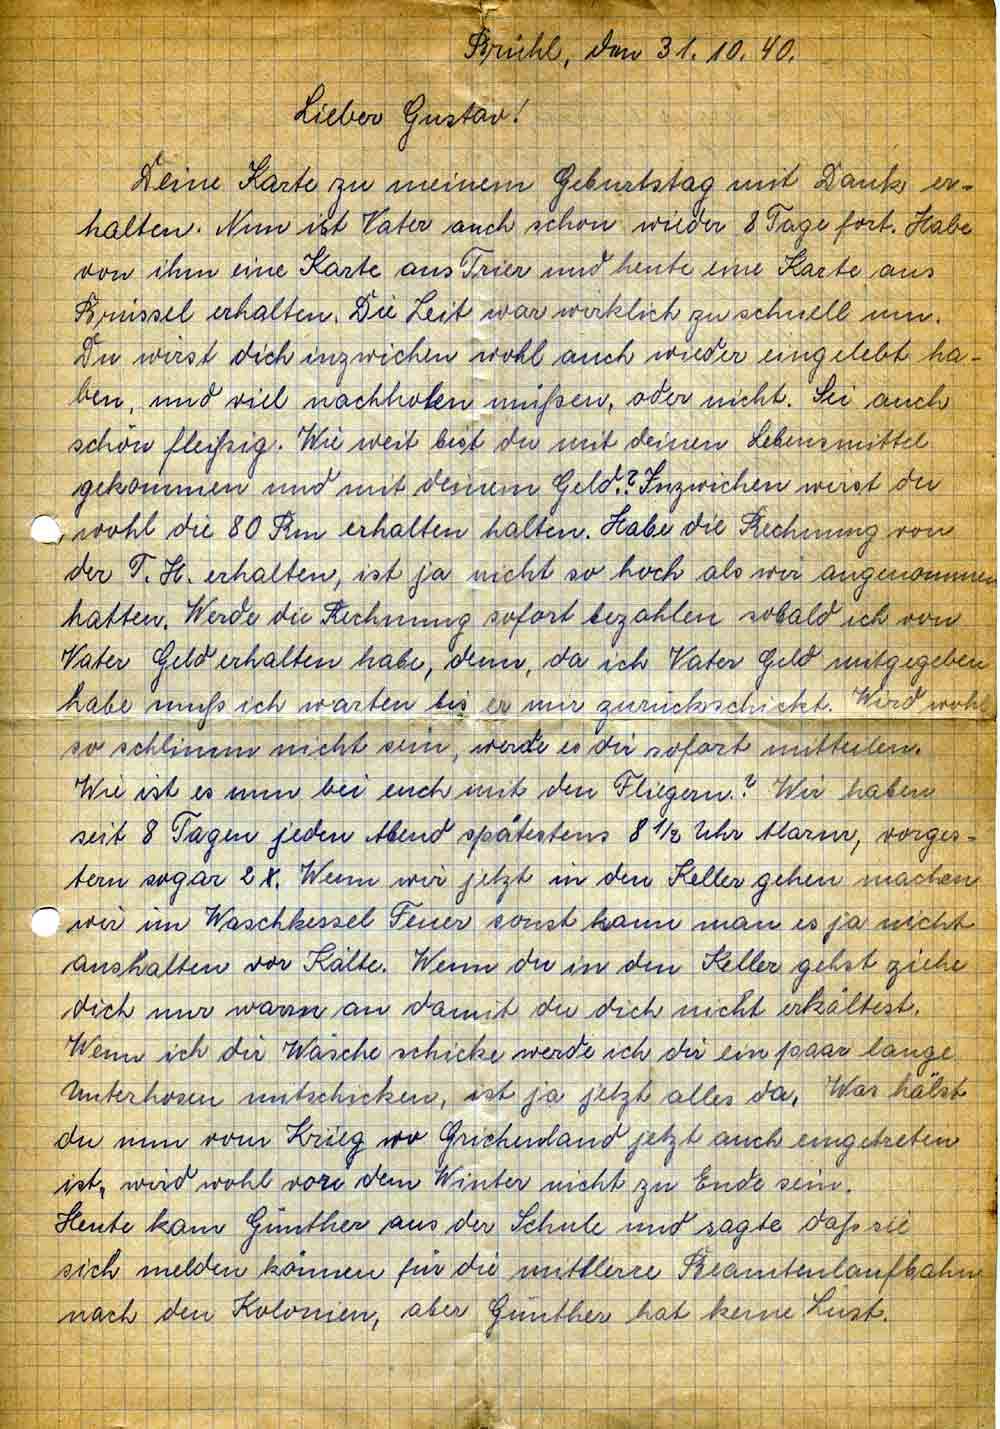 Brühl, den 31.10.40.
Lieber Gustav!
Deine Karte zu meinem Geburtstag mit Dank er-
halten. Nun ist Vater auch schon wieder 8 Tage fort. Habe
von ihm eine Karte aus Trier und heute eine Karte aus
Brüssel erhalten. Die Zeit war wirklich zu schnell um.
Du wirst dich inzwichen wohl auch wieder eingelebt ha-
ben, und viel nachholen müßen, oder nicht. Sei auch
schön fleißig. Wie weit bist du mit deinen Lebensmittel
gekommen und mit deinem Geld.? Inzwichen wirst du
wohl die 80 Rm erhalten halten. Habe die Rechnung von
der T. H. erhalten, ist ja nicht so hoch als wir angenommen
hatten. Werde die Rechnung sofort bezahlen sobald ich von
Vater Geld erhalten habe, denn, da ich Vater Geld mitgegeben
habe muß ich warten bis er mir zurückschickt. Wird wohl
so schlimm nicht sein, werde es dir sofort mitteilen.
Wie ist es nun bei euch mit den Fliegern.? Wir haben
seit 8 Tagen jeden Abend spätestens 8 1/2 Uhr Alarm, vorges-
tern sogar 2 X. Wenn wir jetzt in den Keller gehen machen
wir im Waschkessel Feuer sonst kann man es ja nicht
aushalten vor Kälte. Wenn du in den Keller gehst ziehe
dich nur warm an damit du dich nicht erkältest.
Wenn ich dir Wäsche schicke werde ich dir ein paar lange
Unterhosen mitschicken, ist ja jetzt alles da. Was hälst
du nun vom Krieg wo Grichenland jetzt auch eingetreten
ist, wird wohl vor dem Winter nicht zu Ende sein.
Heute kam Günther aus der Schule und sagte daß sie
sich melden können für die mittlere Beamtenlaufbahn
nach den Kolonien, aber Günther hat keine Lust.